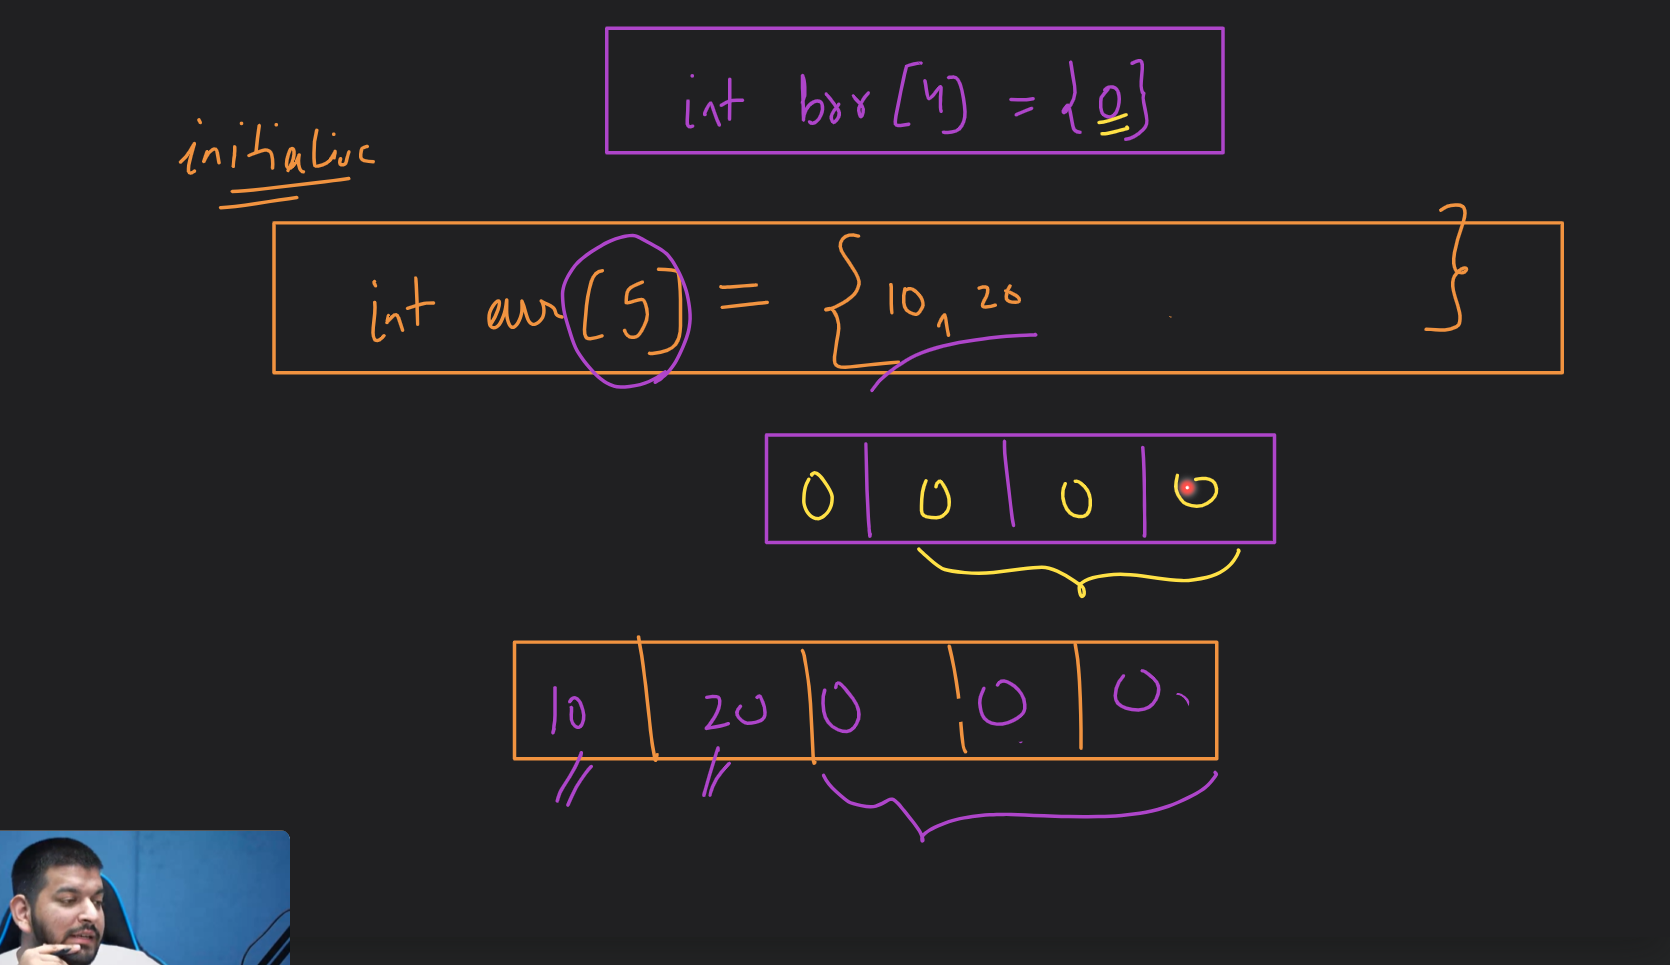 int brr[4] = {0}
initialize
int arr[5] = {10, 20 }
0 0 0 0
10 20 0 0 0